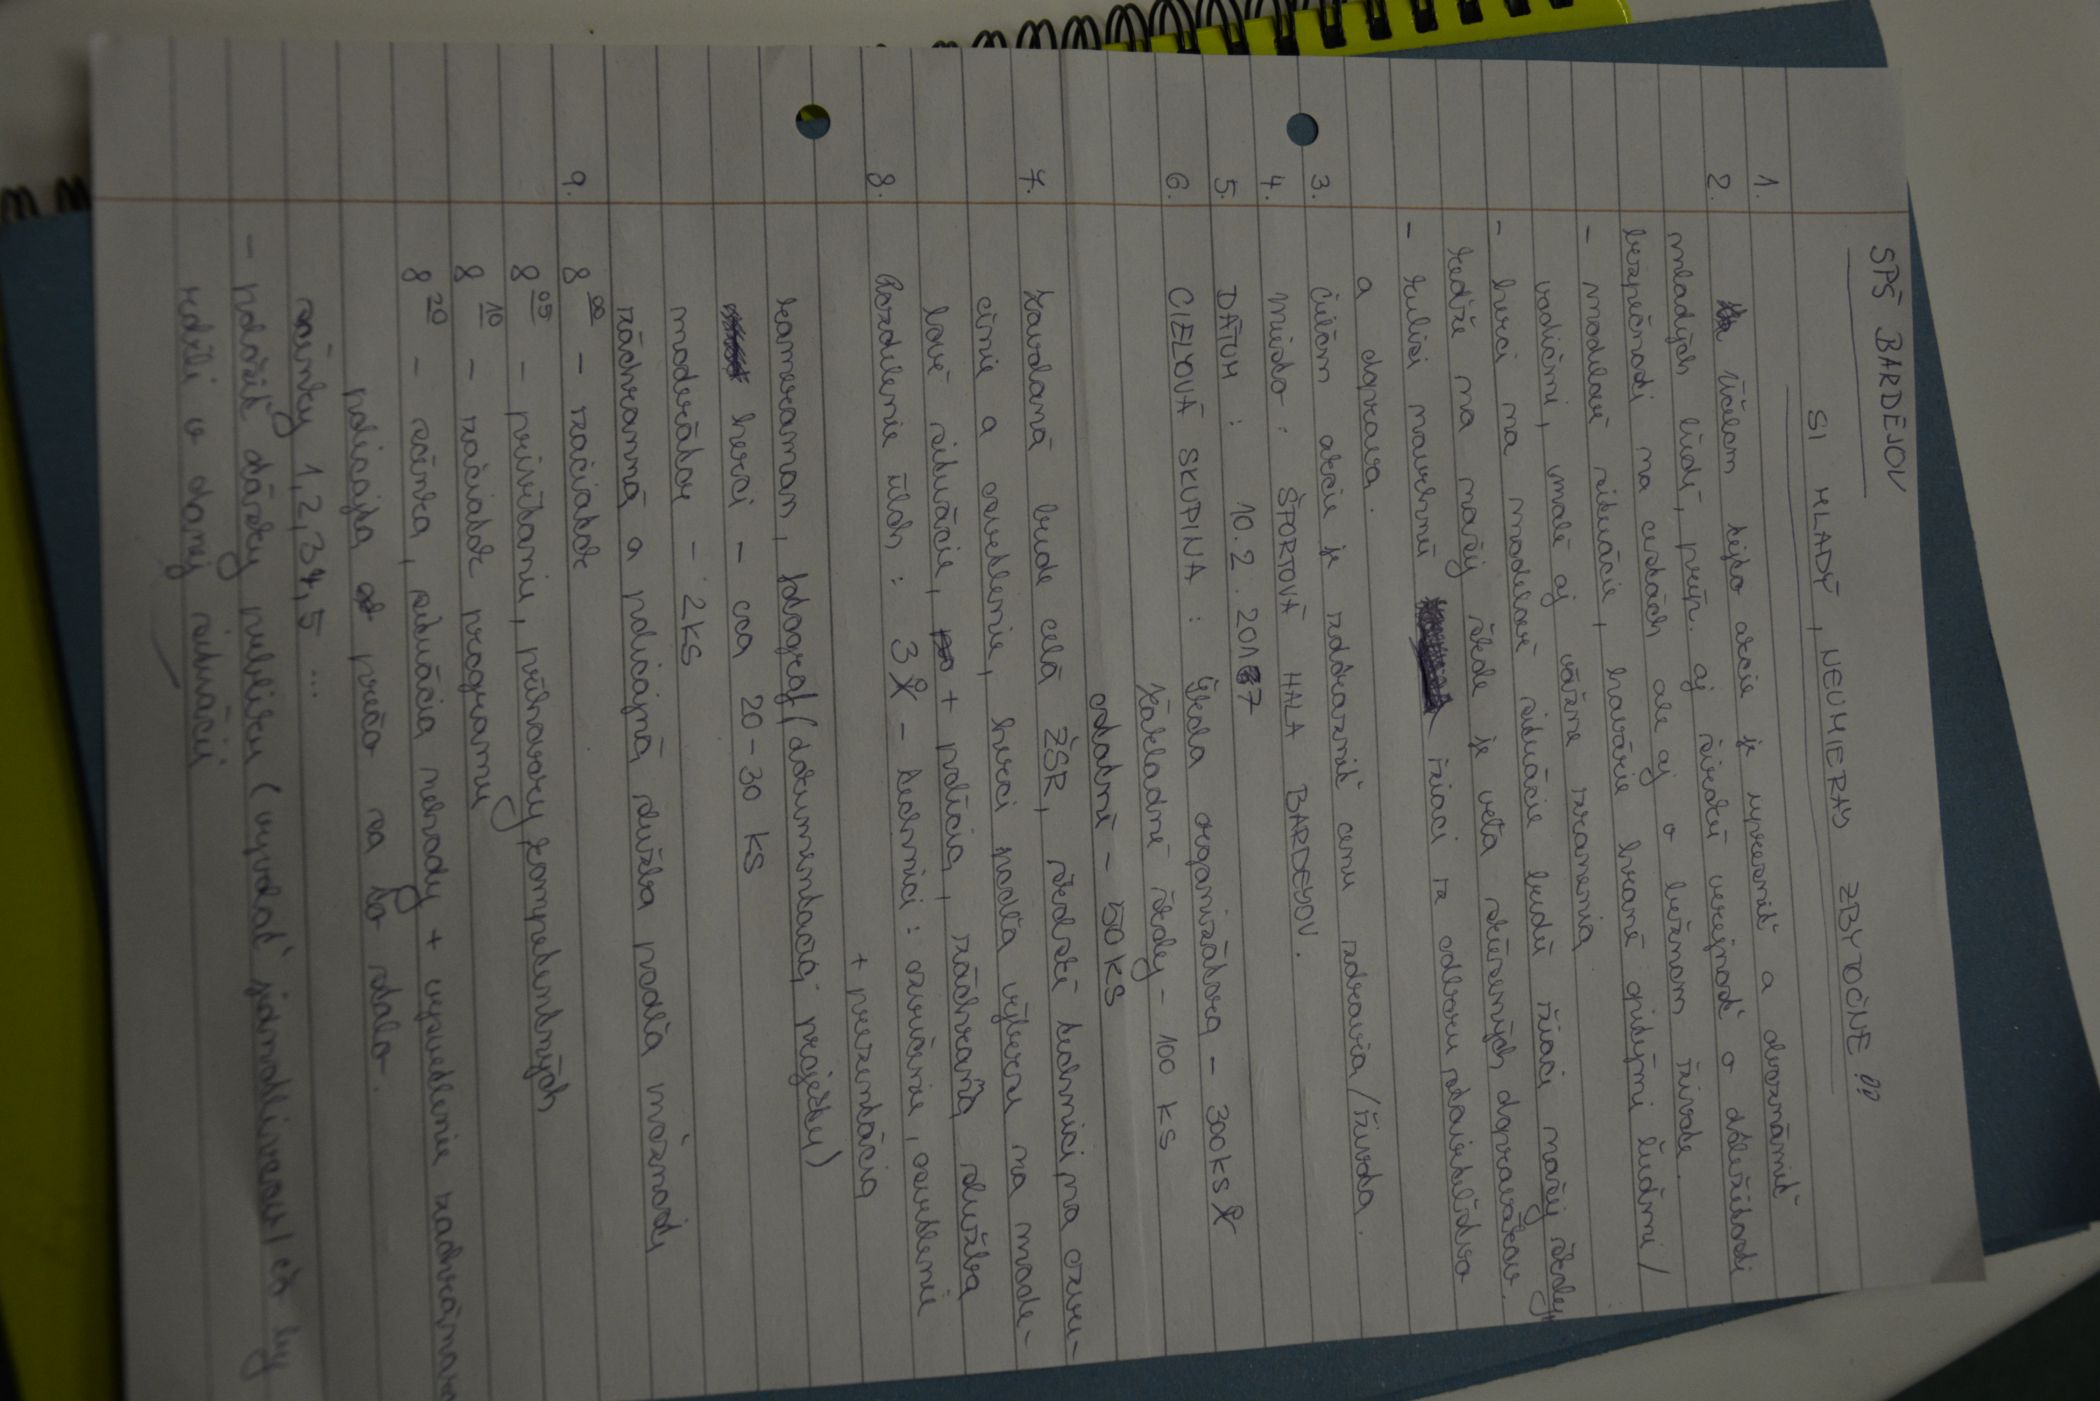 SPŠ BARDEJOV
SI MLADÝ, NEUMIERAJ ZBYTOČNE!!
1.
2. účelom tejto akcie je upozorniť a oboznámiť
mladých ľudí, príp. aj širokú verejnosť o dôležitosti
bezpečnosti na cestách ale aj o bežnom živote.
- modelové situácie, havárie hrané opitými ľuďmi /
vodičmi, malé aj vážne zranenia
- herci na modelové situácie budú žiaci našej školy,
keďže na našej škole je veľa skúsených dopravákov.
- kulisi navrhnú žiaci za odboru staviteľstvo
a doprava.
3. Cieľom akcie je zdôrazniť cenu zdravia / života.
4. Miesto: ŠPORTOVÁ HALA BARDEJOV.
5. DÁTUM: 10.2.2017
6. CIEĽOVÁ SKUPINA: Škola organizátora - 300KS
Základné školy - 100 KS
ostatní - 50KS
7. Zavolaná bude celá ŽŠR, školskí technici na ozvu-
čnie a osvetlenie, herci podľa výberu na mode-
lové situácie, + polícia, záchranná služba
8. Rozdelenie úloh: 3X - technici: ozvučenie, osvetlenie
+ prezentácia
kameraman, fotograf (dokumentácia projektu)
herci - cca 20-30 KS
moderátor - 2KS
záchranná a policajná služba podľa možností
9. 8 00 - začiatok
8 05 - privítanie, príhovory kompetentných
8 10 - začiatok programu
8 20 - scénka, situácia nehody + vysvetlenie
policajta prečo sa to stalo.
scénky 1,2,3,4,5 ...
- položiť otázky publiku (vyvolať čo by
robili v danej situácii